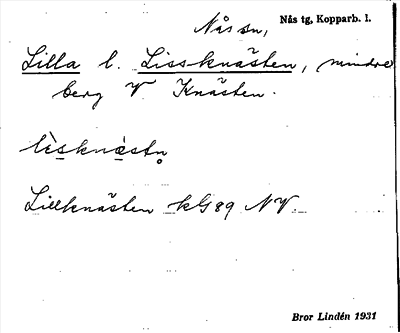 Nås sn, Nås tg, Kopparb. l.
Lilla l. Lissknästen, mindre
berg V Knästen.
lèsknæstn̥
Lillknästen kG89 NV.
Bror Lindén 1931